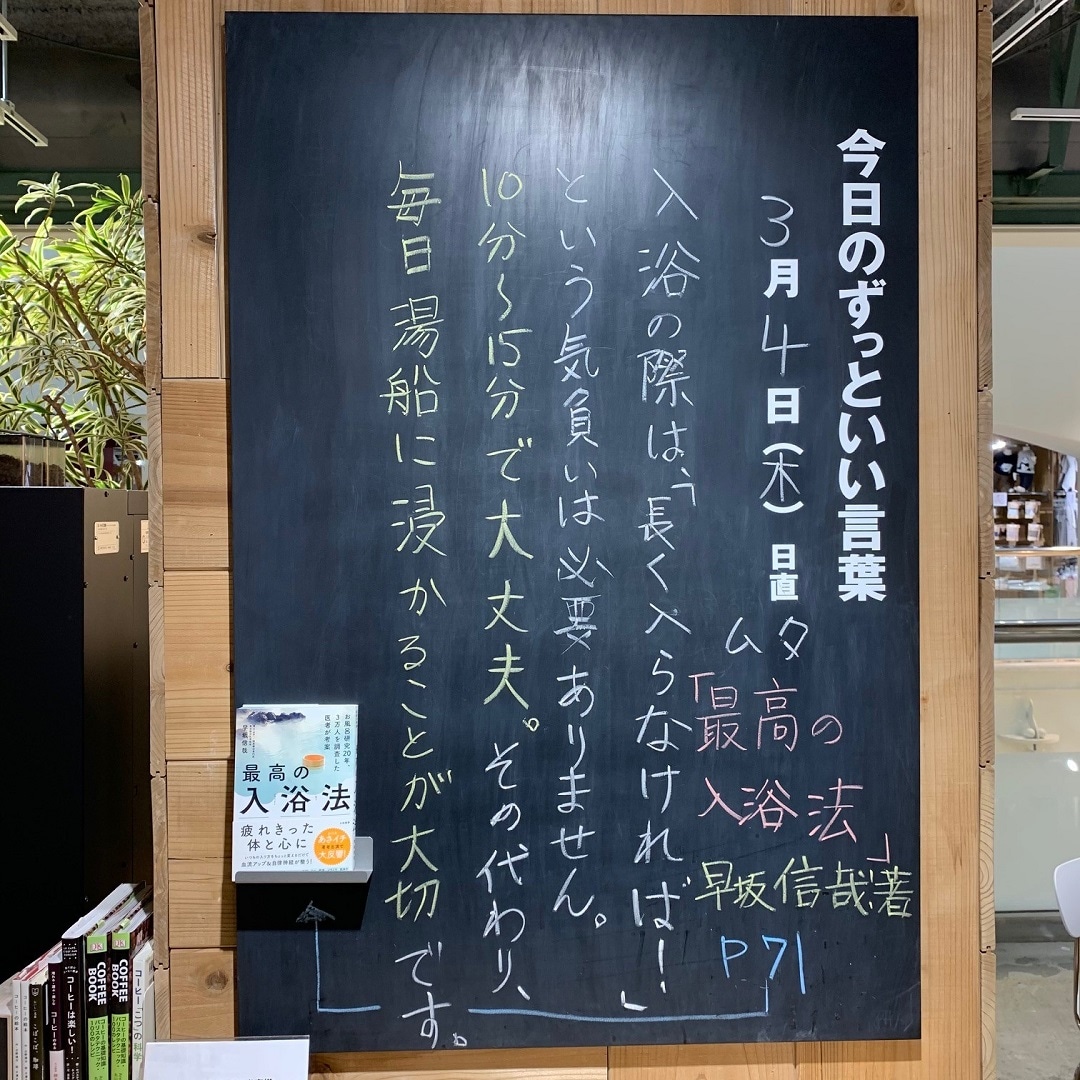 今日のずっといい言葉
3月4日(木) 日直
ムタ
「最高の
入浴法」
早坂信哉著
P71
入浴の際は、「長く入らなければ!」
という気負いは必要ありません。
10分〜15分で大丈夫。その代わり、
毎日湯船に浸かることが大切です。
お風呂研究20年、
3万人を調査した
医者が考案
早坂信哉
最高の
入浴法
疲れきった
体と心に
あさイチ
大反響!
COFFEE BOOK
COFFEE BOOK
コーヒーは楽しい!
コーヒー「こつ」の科学